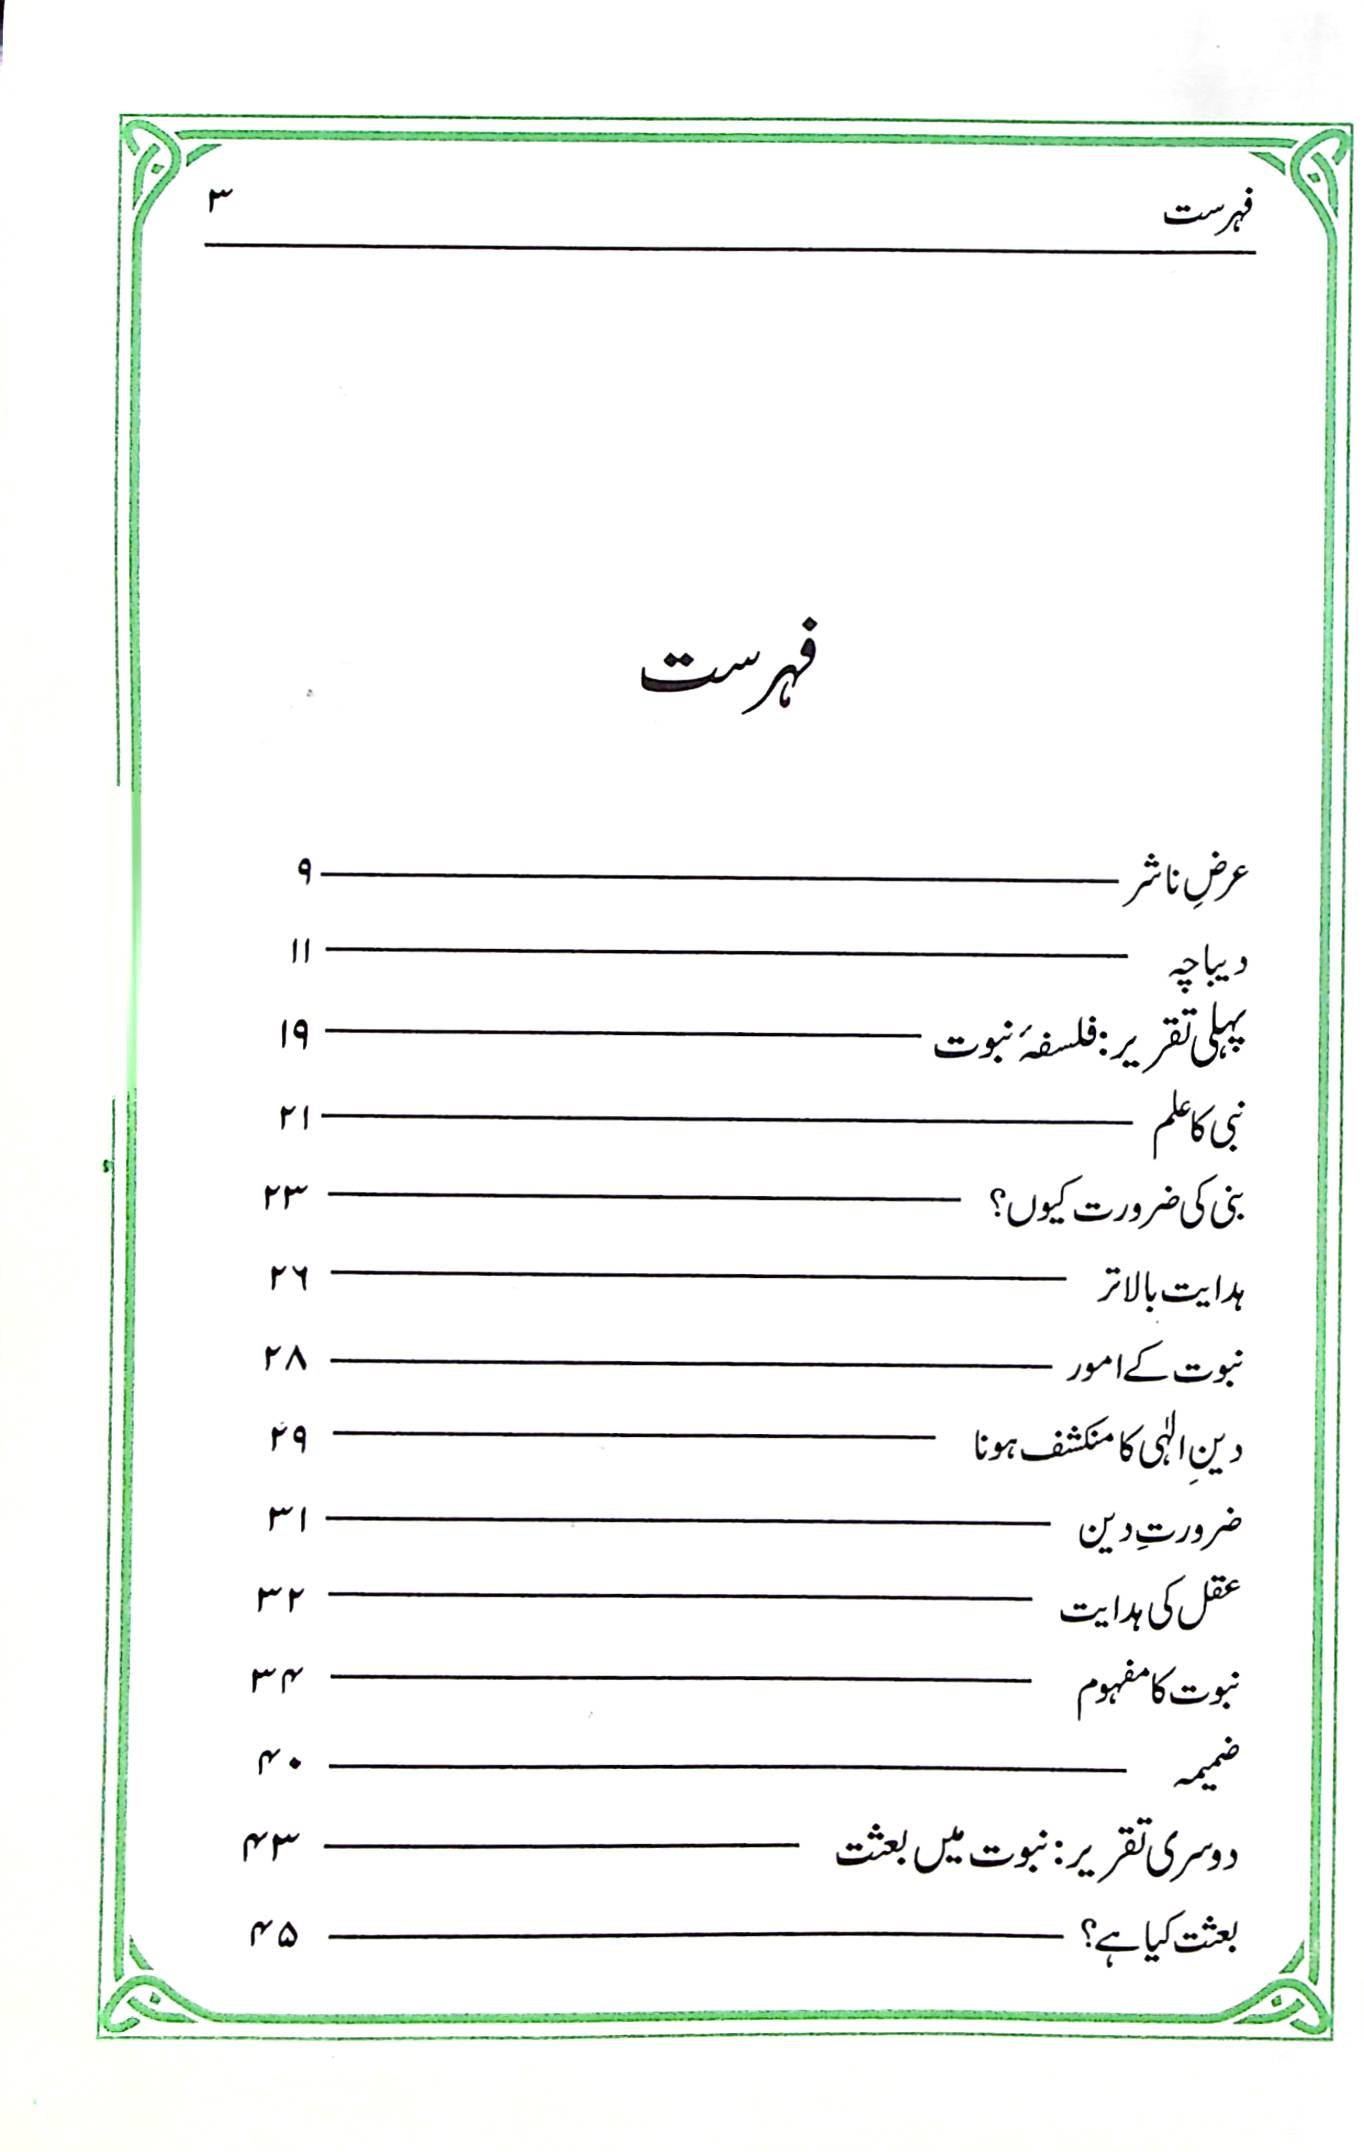 فہرست ۳
فہرست
عرضِ ناشر ۹
دیباچہ ۱۱
پہلی تقریر: فلسفۂ نبوت ۱۹
نبی کا علم ۲۱
بنی کی ضرورت کیوں؟ ۲۳
ہدایت بالاتر ۲۶
نبوت کے امور ۲۸
دینِ الٰہی کا منکشف ہونا ۲۹
ضرورتِ دین ۳۱
عقل کی ہدایت ۳۲
نبوت کا مفہوم ۳۴
ضمیمہ ۴۰
دوسری تقریر: نبوت میں بعثت ۴۳
بعثت کیا ہے؟ ۴۵